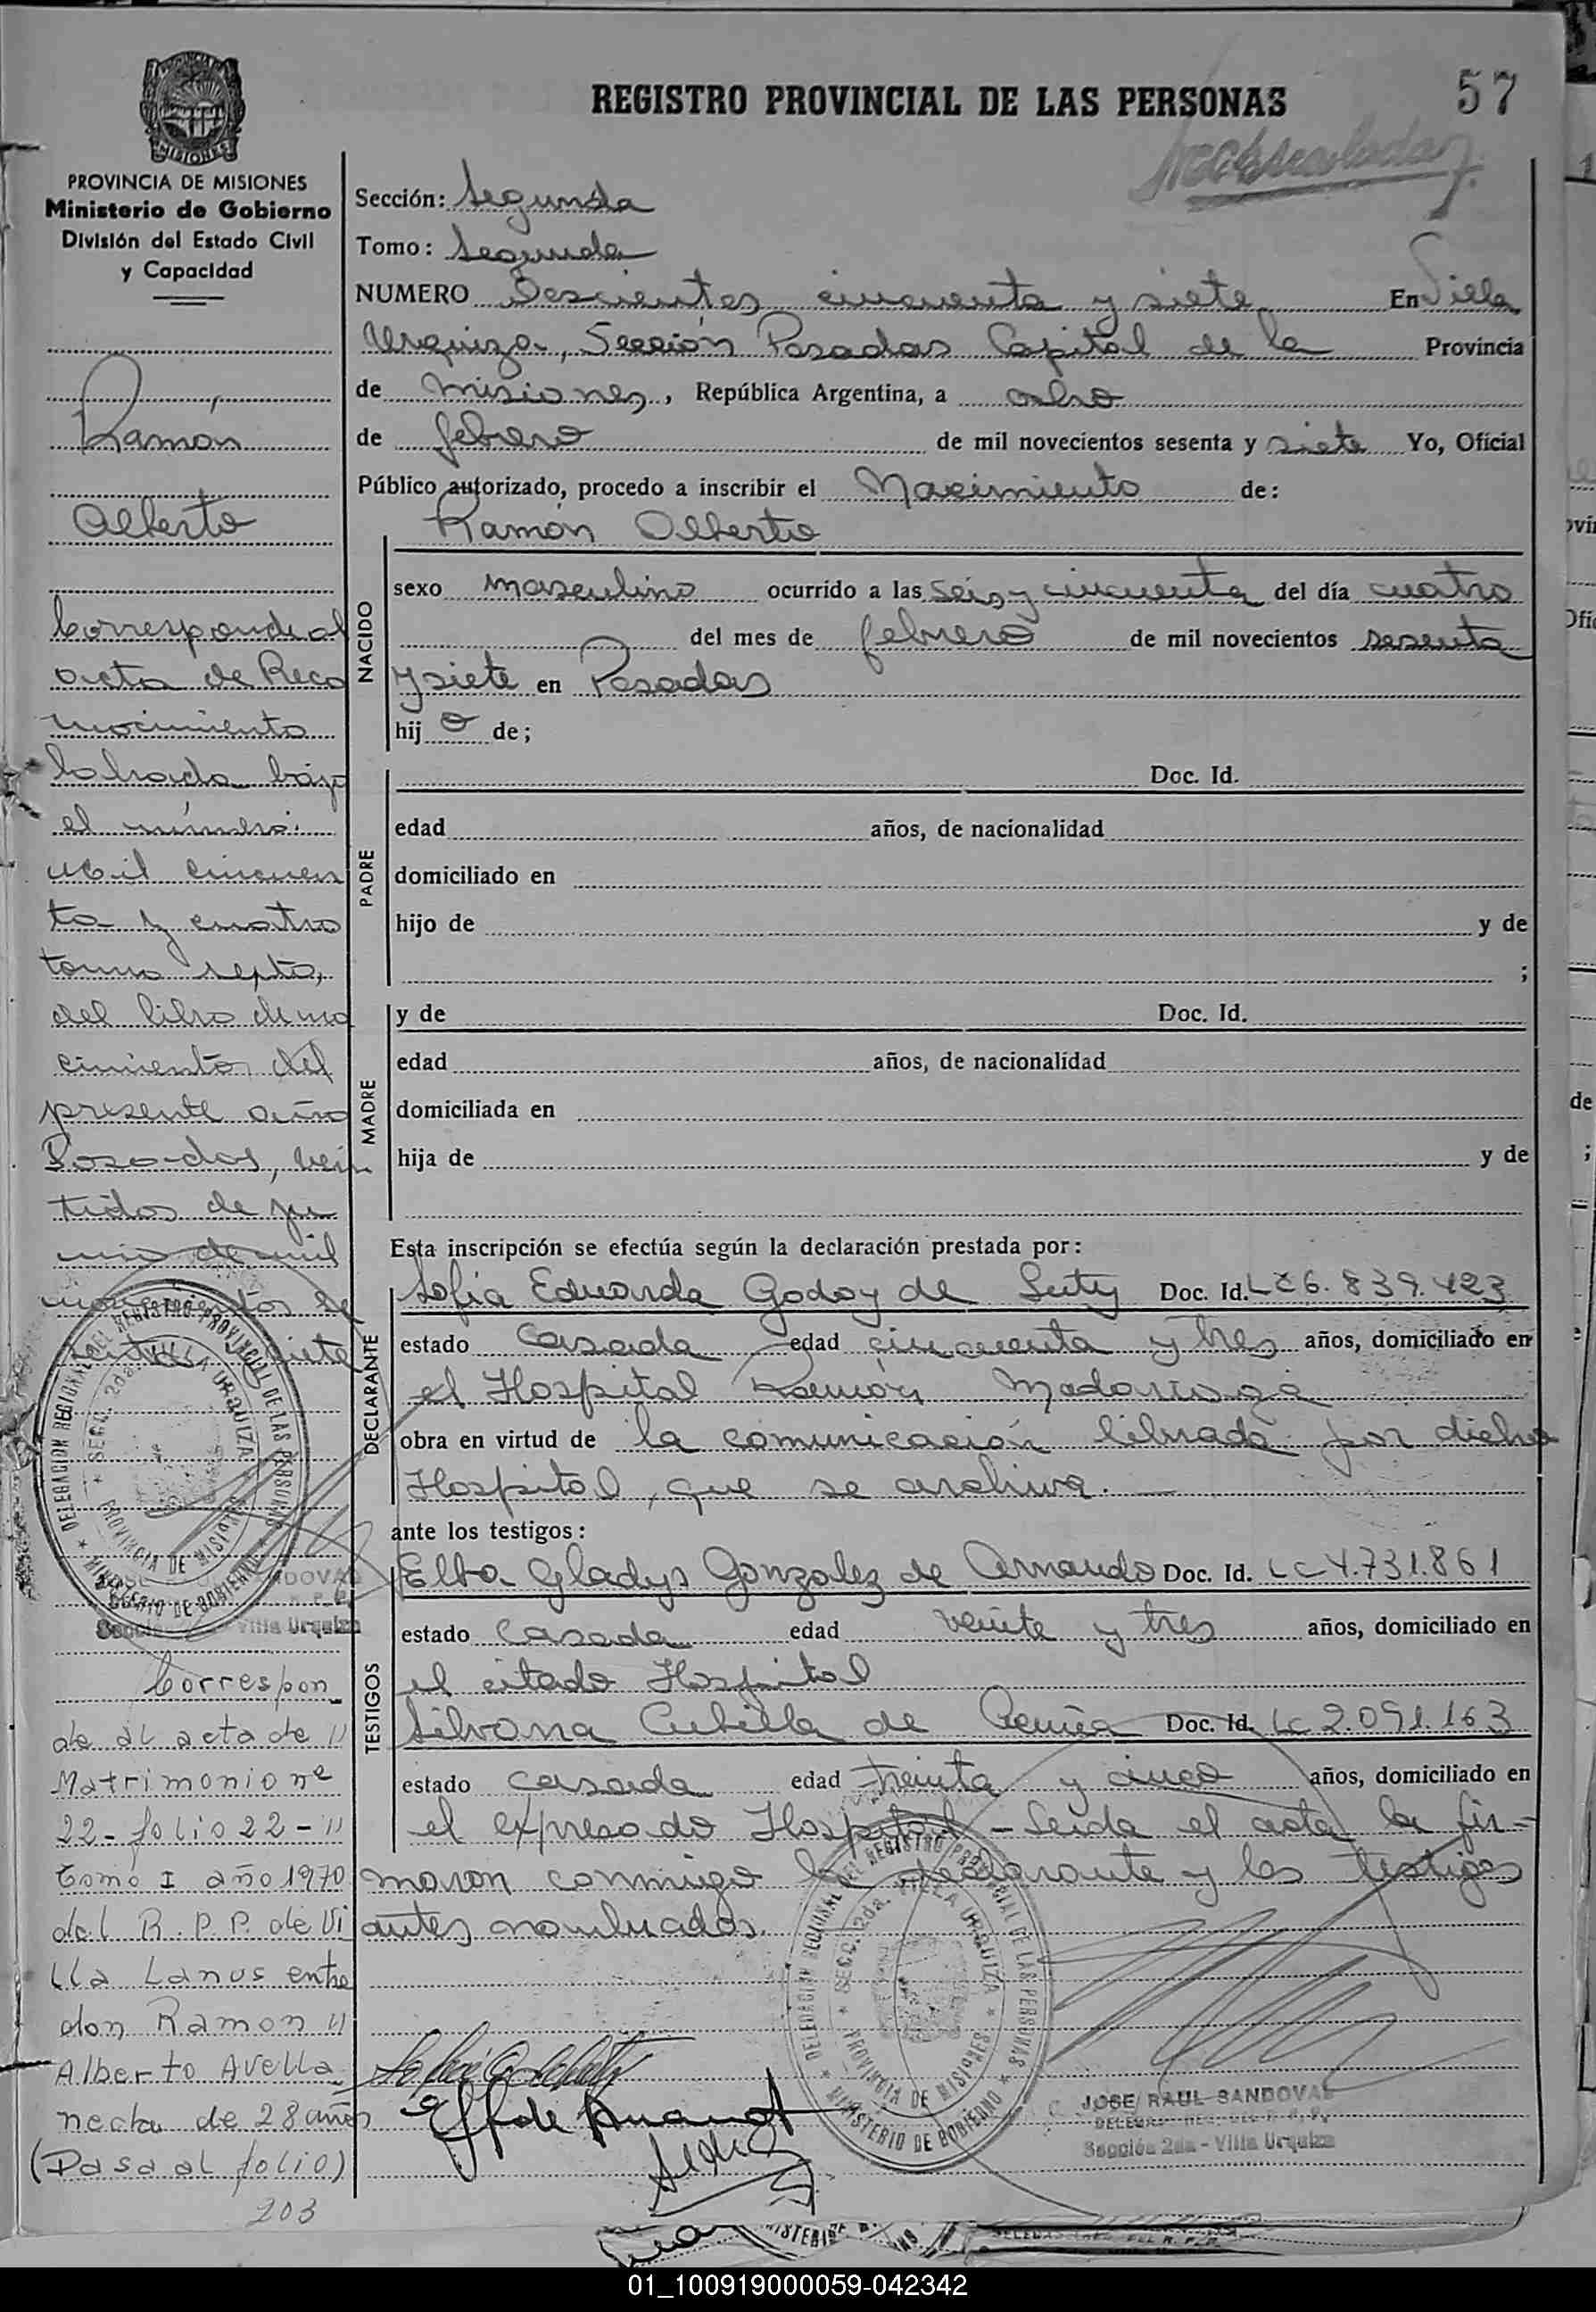 57
REGISTRO PROVINCIAL DE LAS PERSONAS
MISIONES
PROVINCIA DE MISIONES
Ministerio de Gobierno
División del Estado Civil
y Capacidad
Ramón
Alberto
Corresponde al
acta de Reco
nocimiento
labrada bajo
el número:
mil cincuen
ta y cuatro
tomo septo,
del libro de na
cimientos del
presente año
Posadas, vein
tidos de ju
nio de mil
novecientos se
senta y siete
DELEGACION REGIONAL DEL REGISTRO PROVINCIAL DE LAS PERSONAS
SECC. 2da. VILLA URQUIZA
PROVINCIA DE MISIONES
MINISTERIO DE GOBIERNO
Villa Urquiza
Correspon
de al acta de "
Matrimonio nº
22- folio 22- "
tomo I año 1970
del R. P. P. de Vi
lla Lanus entre
don Ramon "
Alberto Avella
neda de 28 años
(Pasa al folio)
203
Sección: Segunda
Tomo: Segundo
NUMERO Doscientos cincuenta y siete En Villa
Urquiza, Sección Posadas Capital de la Provincia
de Misiones, República Argentina, a ocho
de febrero de mil novecientos sesenta y siete Yo, Oficial
Público autorizado, procedo a inscribir el Nacimiento de:
Ramón Alberto
NACIDO
sexo masculino ocurrido a las seis y cincuenta del día cuatro
del mes de febrero de mil novecientos sesenta
y siete en Posadas
hij o de;
PADRE
Doc. Id.
edad años, de nacionalidad
domiciliado en
hijo de y de
;
MADRE
y de Doc. Id.
edad años, de nacionalidad
domiciliada en
hija de y de
Esta inscripción se efectúa según la declaración prestada por:
DECLARANTE
Sofia Eduarda Godoy de Doc. Id. LC 6.839.423
estado casada edad cincuenta y tres años, domiciliado en
el Hospital Ramón Madariaga
obra en virtud de la comunicación librada por dicho
Hospital, que se archiva.
ante los testigos:
TESTIGOS
Elba Gladys Gonzalez de Doc. Id. LC 4.731.861
estado casada edad veinte y tres años, domiciliado en
el citado Hospital
Silvana Cubilla de Doc. Id. LC 2.091.163
estado casada edad treinta y cinco años, domiciliado en
el expresado Hospital - Leida el acta la fir-
maron conmigo la declarante y los testigos
antes nombrados.
DELEGACION REGIONAL DEL REGISTRO PROVINCIAL DE LAS PERSONAS
SECC. 2da. VILLA URQUIZA
PROVINCIA DE MISIONES
MINISTERIO DE GOBIERNO
JOSE RAUL SANDOVAL
Sección 2da - Villa Urquiza
01_100919000059-042342